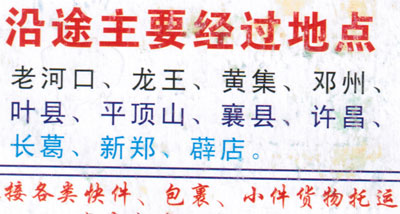 沿途主要经过地点
老河口、龙王、黄集、邓州、
叶县、平顶山、襄县、许昌、
长葛、新郑、薛店。
接各类快件、包裹、小件货物托运